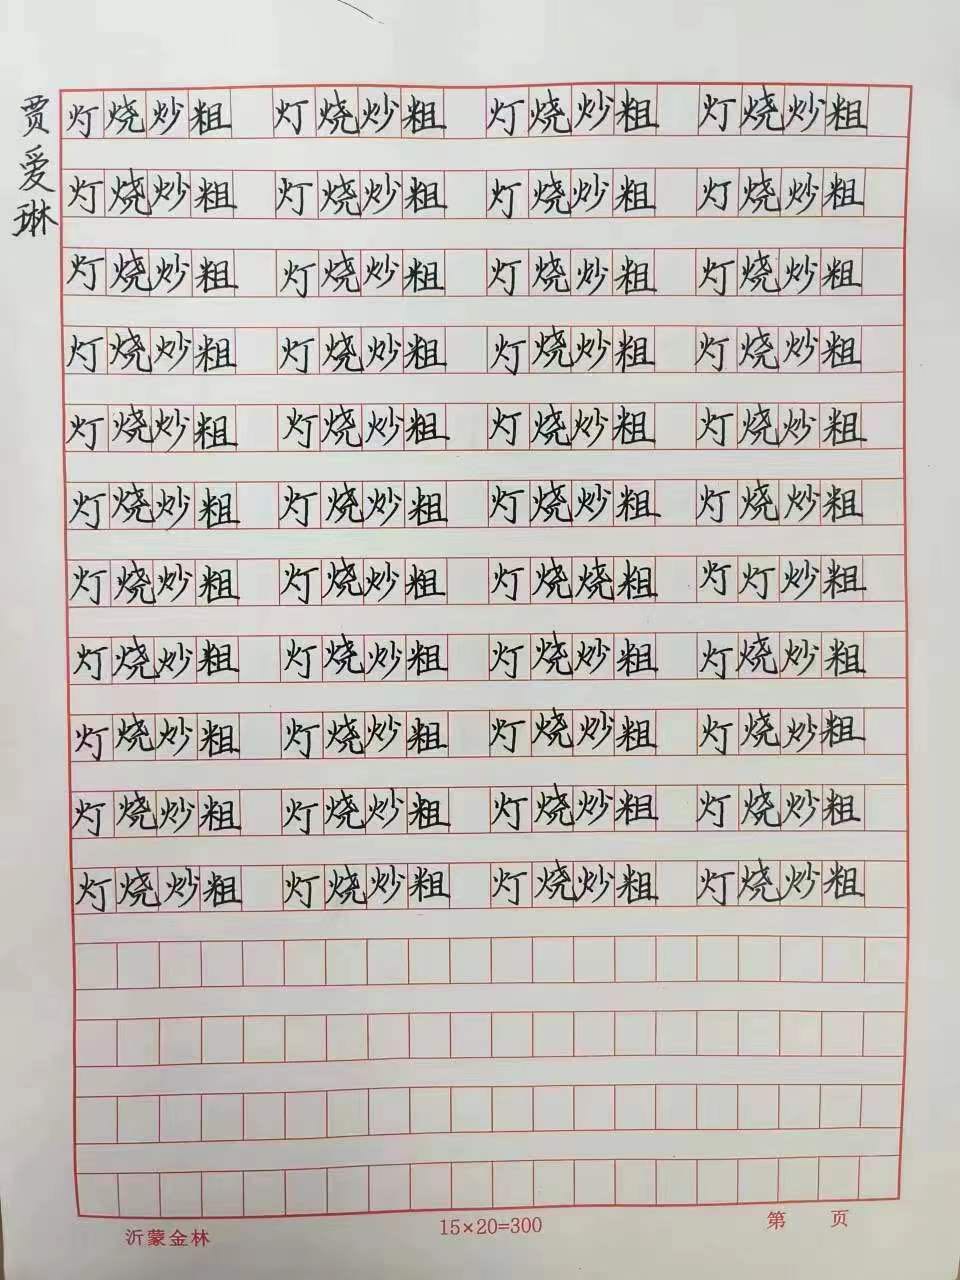 贾爱琳
灯烧炒粗 灯烧炒粗 灯烧炒粗 灯烧炒粗
灯烧炒粗 灯烧炒粗 灯烧炒粗 灯烧炒粗
灯烧炒粗 灯烧炒粗 灯烧炒粗 灯烧炒粗
灯烧炒粗 灯烧炒粗 灯烧炒粗 灯烧炒粗
灯烧炒粗 灯烧炒粗 灯烧炒粗 灯烧炒粗
灯烧炒粗 灯烧炒粗 灯烧炒粗 灯烧炒粗
灯烧炒粗 灯烧炒粗 灯烧烧粗 灯灯炒粗
灯烧炒粗 灯烧炒粗 灯烧炒粗 灯烧炒粗
灯烧炒粗 灯烧炒粗 灯烧炒粗 灯烧炒粗
灯烧炒粗 灯烧炒粗 灯烧炒粗 灯烧炒粗
灯烧炒粗 灯烧炒粗 灯烧炒粗 灯烧炒粗
沂蒙金林 15×20=300 第 页